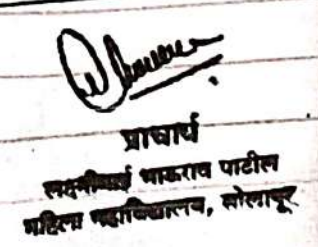 प्राचार्य
लक्ष्मीबाई भाऊराव पाटील
महिला महाविद्यालय, सोलापूर